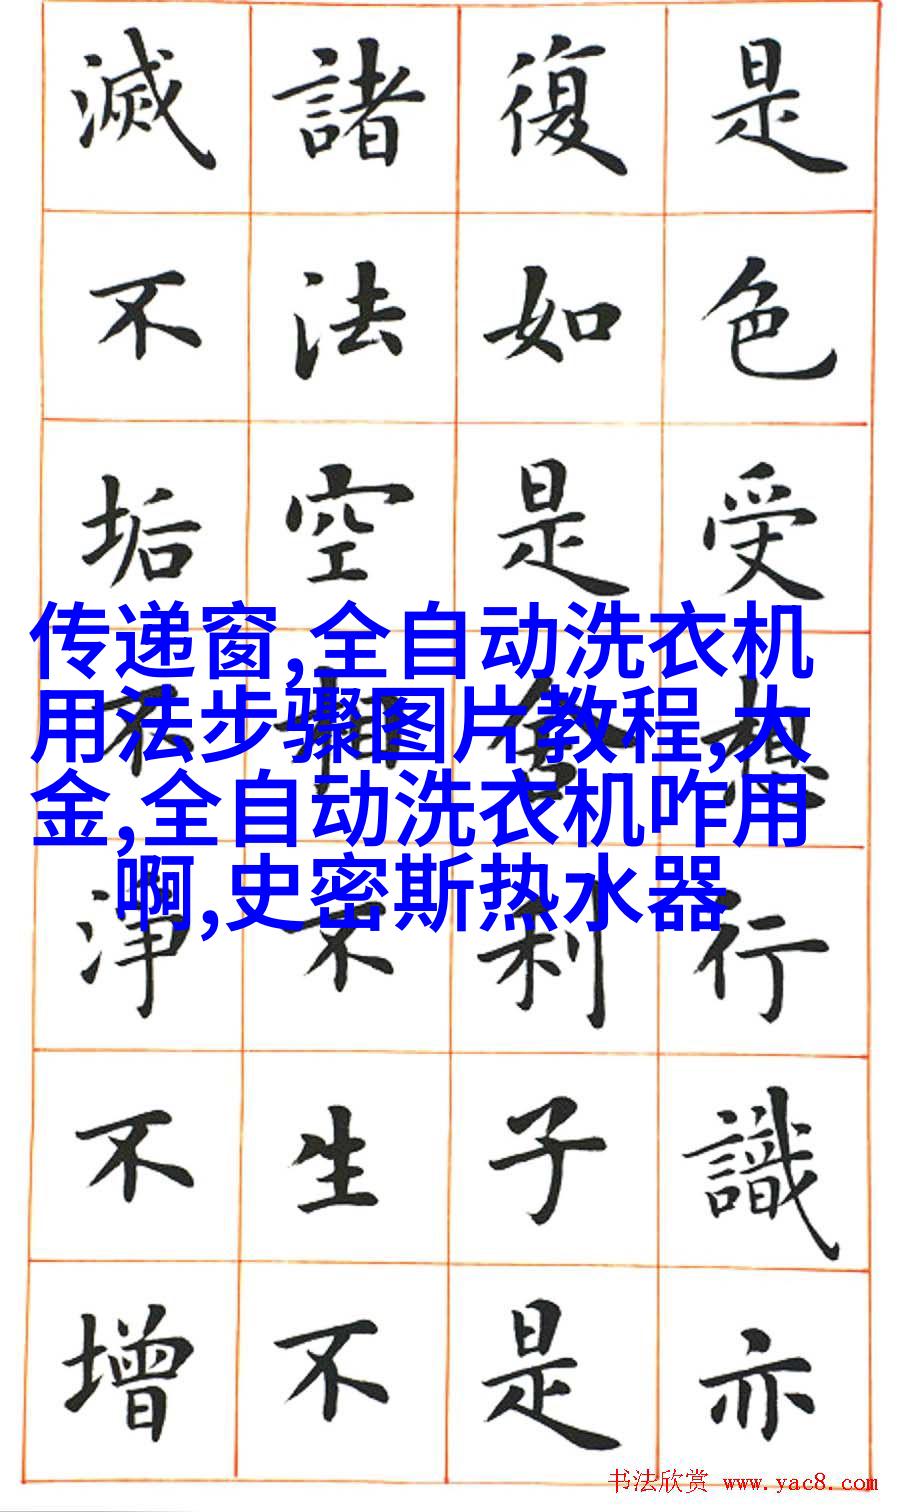 是色受想行識亦
復如是舍利子是
諸法空相不生不
滅不垢不淨不增
传递窗,全自动洗衣机
用法步骤图片教程,大
金,全自动洗衣机咋用
啊,史密斯热水器
书法欣赏 www.yac8.com